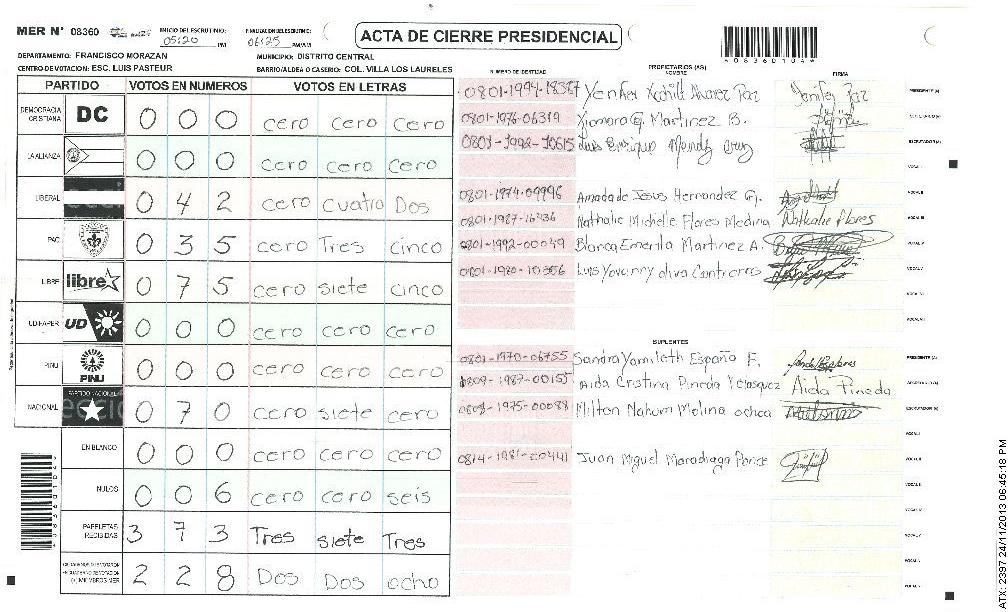 MER N° 08360
INICIO DEL ESCRUTINIO: 05:20 PM
FINALIZACION ESCRUTINIO: 06:25 PM/AM
ACTA DE CIERRE PRESIDENCIAL
*08360104*
DEPARTAMENTO: FRANCISCO MORAZAN
MUNICIPIO: DISTRITO CENTRAL
CENTRO DE VOTACION: ESC. LUIS PASTEUR
BARRIO/ALDEA O CASERIO: COL. VILLA LOS LAURELES
PARTIDO VOTOS EN NUMEROS VOTOS EN LETRAS
DEMOCRACIA CRISTIANA DC 0 0 0 cero cero cero
LA ALIANZA 0 0 0 cero cero cero
LIBERAL 0 4 2 cero cuatro Dos
PAC 0 3 5 cero Tres cinco
LIBRE libre 0 7 5 cero siete cinco
UD-FAPER UD 0 0 0 cero cero cero
PINU PINU 0 0 0 cero cero cero
NACIONAL PARTIDO NACIONAL 0 7 0 cero siete cero
EN BLANCO 0 0 0 cero cero cero
NULOS 0 0 6 cero cero seis
PAPELETAS RECIBIDAS 3 7 3 Tres siete Tres
(+) MIEMBROS MER 2 2 8 Dos Dos ocho
NUMERO DE IDENTIDAD PROPIETARIOS (AS) NOMBRE FIRMA
0801-1994-18367 Xochilt Alvarez Paz PRESIDENTE (A)
0801-1976-06319 Xiomara G. Martinez B. SECRETARIO (A)
0801-1992-10615 Luis Enrique ESCRUTADOR (A)
VOCAL I
0801-1974-09996 Amada de Jesus Hernandez G. VOCAL II
0801-1987-16236 Nathalie Michelle Flores Medina Nathalie Flores VOCAL III
0801-1992-00049 Blanca Emerita Martinez A. VOCAL IV
0801-1980-10356 Luis Yovanny oliva Contreras VOCAL V
VOCAL VI
VOCAL VII
SUPLENTES
0801-1970-06755 Sandra Yamileth España F. PRESIDENTE (A)
0809-1987-00155 Aida Cristina Pineda Velasquez Aida Pineda SECRETARIO (A)
0801-1975-00088 Milton Nahum Molina ochoa ESCRUTADOR (A)
VOCAL I
0814-1981-00441 Juan Miguel Maradiaga Ponce VOCAL II
VOCAL III
VOCAL IV
VOCAL V
VOCAL VI
VOCAL VII
ATX: 2397 24/11/2013 06:45:18 PM